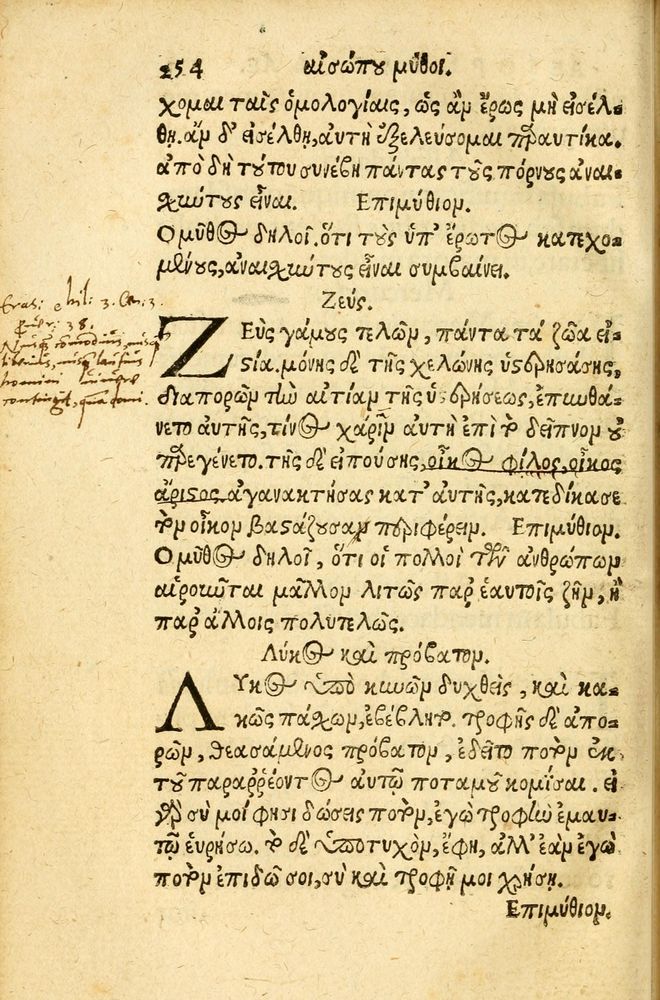 254 αἰσώπου μῦθοι.
χομαι ταῖς ὁμολογίαις, ὡς ἂν ἔρως μὴ εἰσέλ-
θῃ. ἂν δ' εἰσέλθῃ, αὐτὴ ἐξελεύσομαι παραυτίκα.
ἀπὸ δὴ τούτου συνέβη πάντας τοὺς πόρνους ἀναι-
σχύντους εἶναι. Επιμύθιον.
Ο μῦθος δηλοῖ. ὅτι τοὺς ὑπ' ἔρωτος κατεχο-
μένους, ἀναισχύντους εἶναι συμβαίνει.
Ζεύς.
ΖΕὺς γάμους τελῶν, πάντα τὰ ζῶα εἱ-
στία. μόνης δὲ τῆς χελώνης ὑστρησάσης,
διαπορῶν τὴν αἰτίαν τῆς ὑστρήσεως, ἐπυνθά-
νετο αὐτῆς, τίνος χάριν αὐτὴ ἐπὶ τὸ δεῖπνον οὐ
παρεγένετο. τῆς δὲ εἰπούσης, οἶκος φίλος, οἶκος
ἄριστος, ἀγανακτήσας κατ' αὐτῆς, κατεδίκασε
τὸν οἶκον βαστάζουσαν περιφέρειν. Επιμύθιον.
Ο μῦθος δηλοῖ, ὅτι οἱ πολλοὶ τῶν ἀνθρώπων
αἱροῦνται μᾶλλον λιτῶς παρ' ἑαυτοῖς ζῆν, ἢ
παρ' ἄλλοις πολυτελῶς.
Λύκος καὶ πρόβατον.
ΛΥκος ὑπὸ κυνῶν δηχθεὶς, καὶ κα-
κῶς πάσχων, ἐβέβλητο. τροφῆς δὲ ἀπο-
ρῶν, θεασάμενος πρόβατον, ἐδεῖτο ποτὸν ἐκ
τοῦ παραῤῥέοντος αὐτῷ ποταμοῦ κομίσαι. εἰ
γὰρ σύ μοί φησι δώσεις ποτὸν, ἐγὼ τροφὴν ἐμαυ-
τῷ εὑρήσω. τὸ δὲ ὑποτυχὸν, ἔφη, ἀλλ' ἐὰν ἐγὼ
ποτὸν ἐπιδῶ σοι, σὺ καὶ τροφῇ μοι χρήσῃ.
Επιμύθιον.